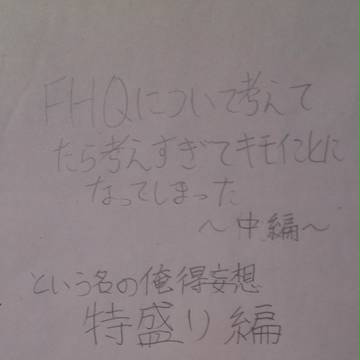 FHQについて考えて
たら考えすぎてキモイことに
なってしまった
〜中編〜
という名の俺得妄想
特盛り編